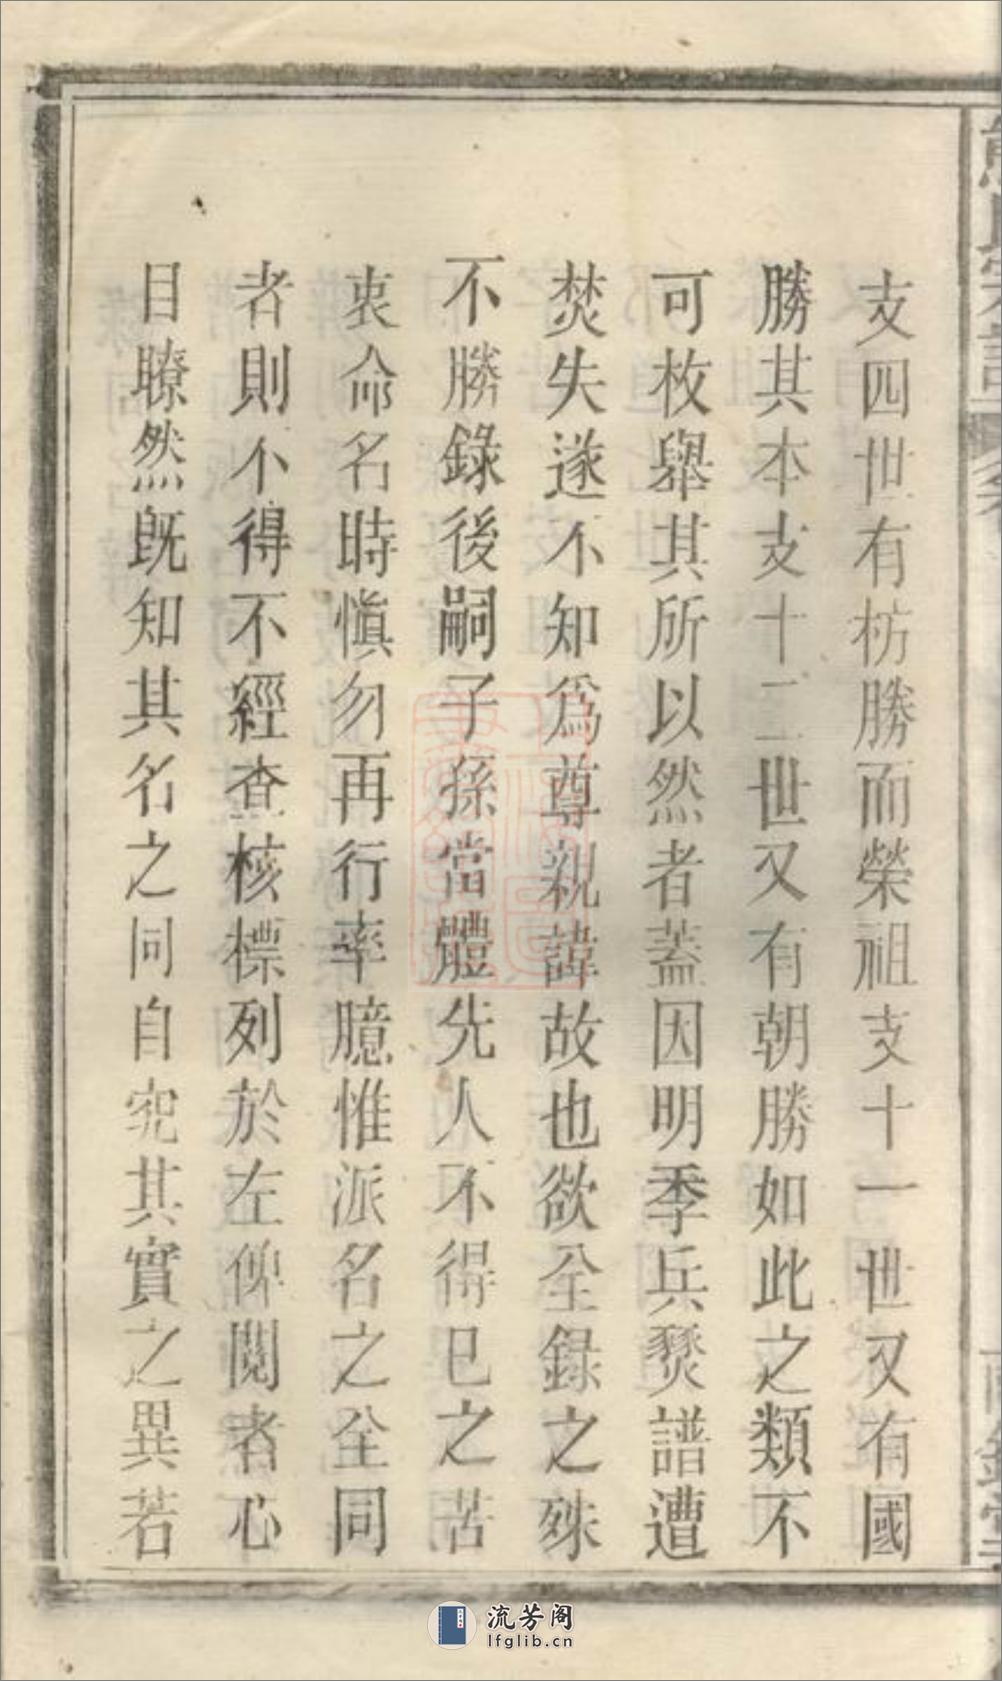 支四世有枋勝而榮祖支十一世又有國
勝其本支十二世又有朝勝如此之類不
可枚舉其所以然者蓋因明季兵燹譜遭
焚失遂不知爲尊親諱故也欲全録之殊
不勝錄後嗣子孫當體先人不得已之苦
衷命名時愼勿再行率臆惟派名之全同
者則不得不經查核標列於左俾閱者心
目瞭然既知其名之同自究其實之異若
流芳阁
lfglib.cn